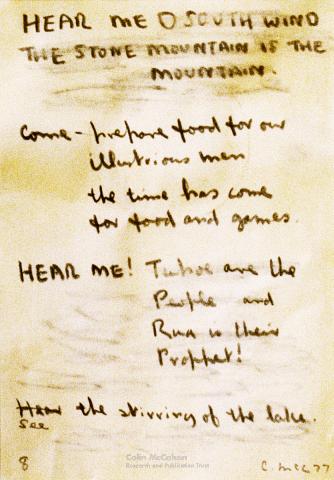 HEAR ME O SOUTH WIND
THE STONE MOUNTAIN IS THE
MOUNTAIN.
Come - prepare food for our
illustrious men
the time has come
for food and games.
HEAR ME! Tuhoe are the
People and
Rua is their
Prophet!
Hear the stirring of the lake.
See
8
C. McC 77
Colin McCahon
Research and Publication Trust